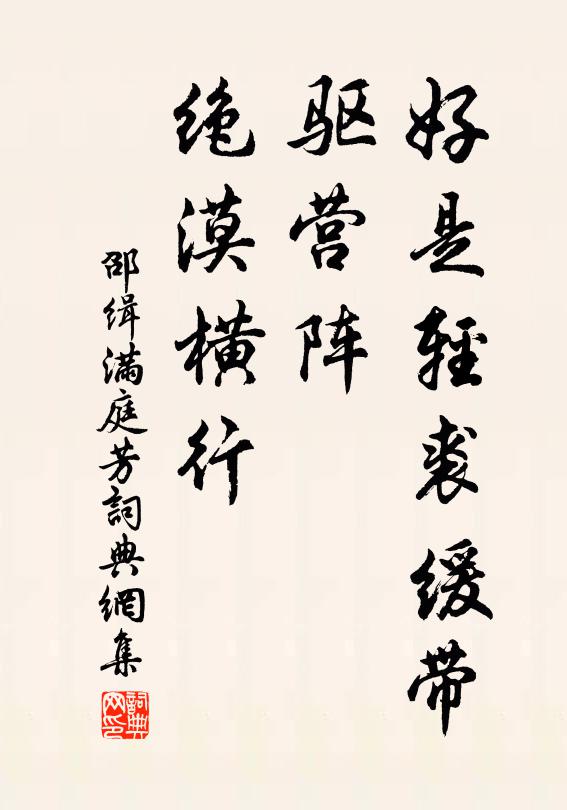 好是輕裘缓带
驱营阵
绝漠横行
邵缉滿庭芳詞典網集
詞典网印